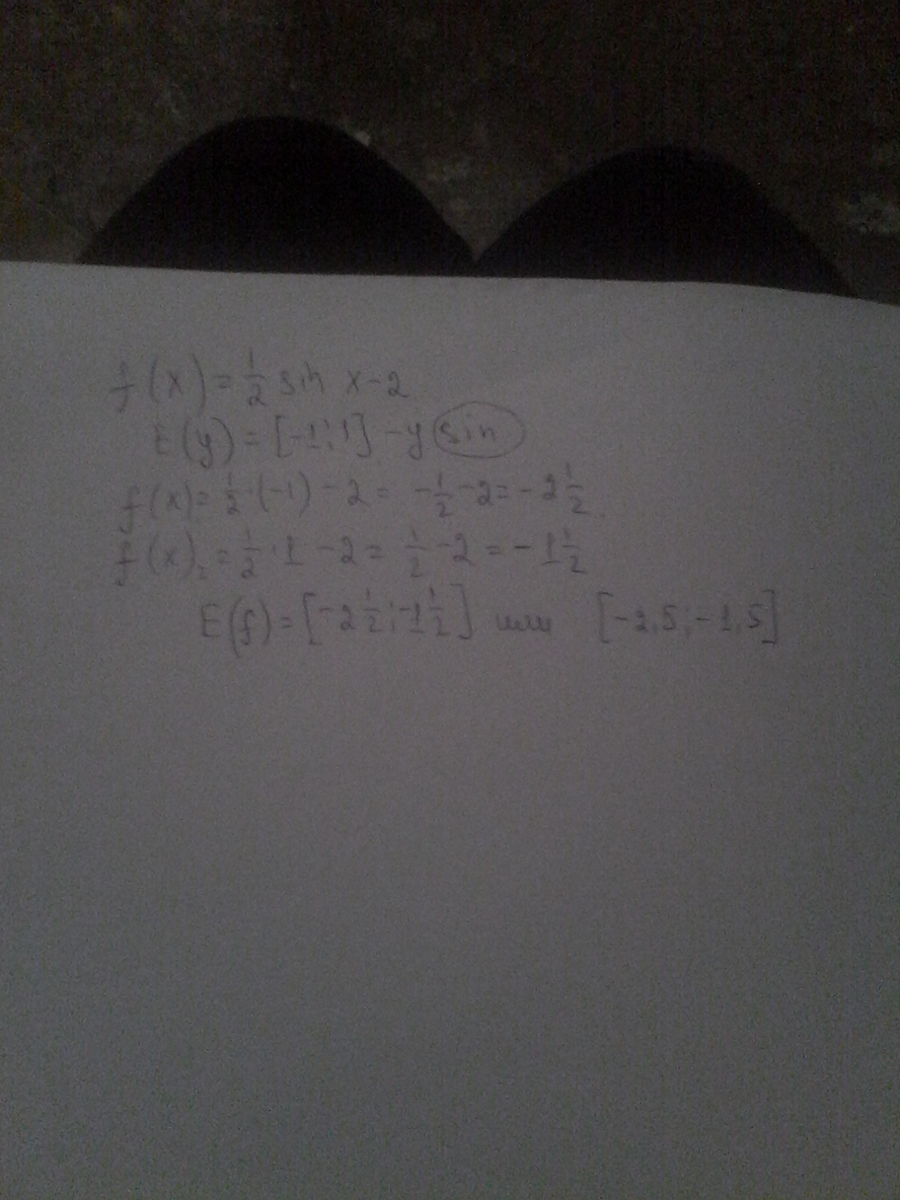 f(x)=1/2 sin x-2
E(y)=[-1;1] -у sin
f(x)=1/2·(-1)-2= -1/2-2=-2 1/2.
f(x)₂=1/2·1-2=1/2-2=-1 1/2
E(f)=[-2 1/2;-1 1/2] или [-2,5;-1,5]